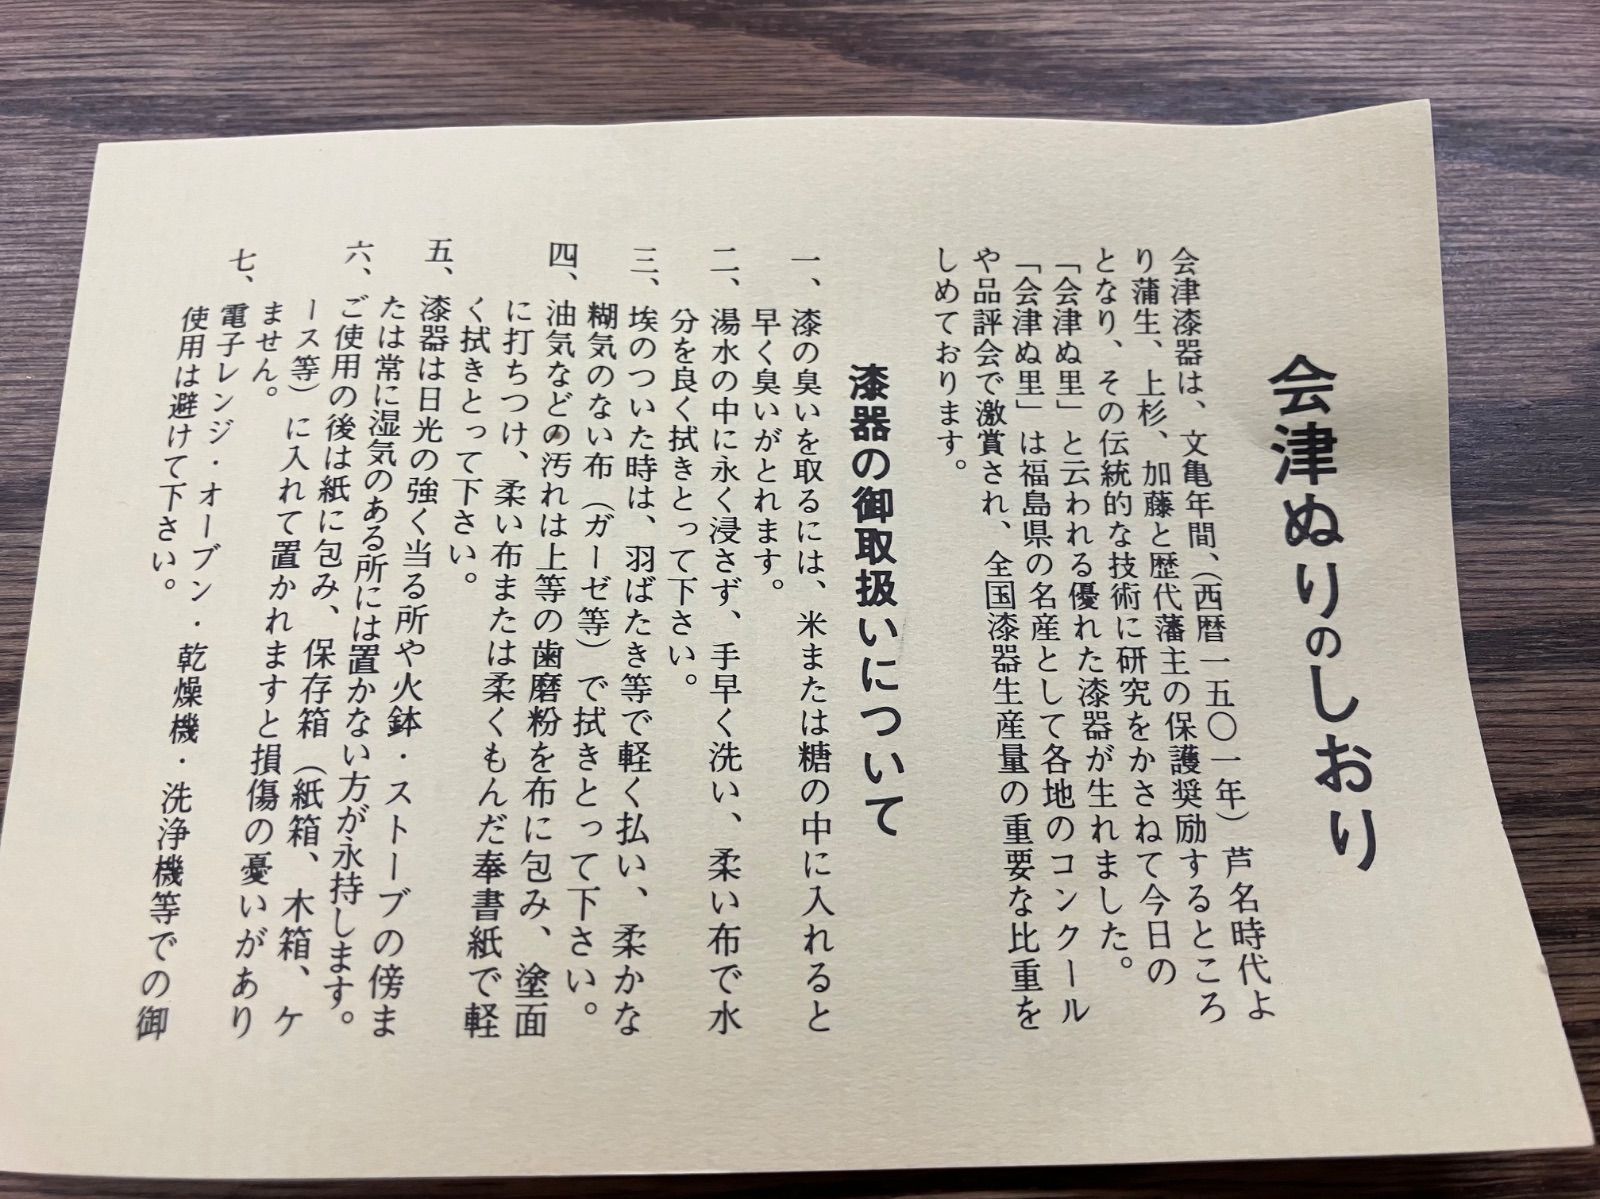 会津ぬりのしおり
会津漆器は、文亀年間、(西暦一五〇一年)芦名時代よ
り蒲生、上杉、加藤と歴代藩主の保護奨励するところ
となり、その伝統的な技術に研究をかさねて今日の
「会津ぬ里」と云われる優れた漆器が生れました。
「会津ぬ里」は福島県の名産として各地のコンクール
や品評会で激賞され、全国漆器生産量の重要な比重を
しめております。
漆器の御取扱いについて
一、漆の臭いを取るには、米または糖の中に入れると
早く臭いがとれます。
二、湯水の中に永く浸さず、手早く洗い、柔い布で水
分を良く拭きとって下さい。
三、埃のついた時は、羽ばたき等で軽く払い、柔かな
糊気のない布(ガーゼ等)で拭きとって下さい。
四、油気などの汚れは上等の歯磨粉を布に包み、塗面
に打ちつけ、柔い布または柔くもんだ奉書紙で軽
く拭きとって下さい。
五、漆器は日光の強く当る所や火鉢・ストーブの傍ま
たは常に湿気のある所には置かない方が永持します。
六、ご使用の後は紙に包み、保存箱(紙箱、木箱、ケ
ース等)に入れて置かれますと損傷の憂いがあり
ません。
七、電子レンジ・オーブン・乾燥機・洗浄機等での御
使用は避けて下さい。